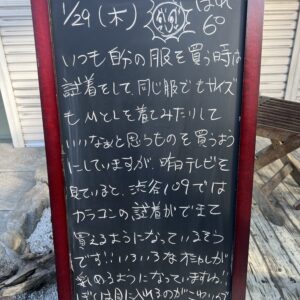 1/29(木) はれ
6°
いつも自分の服を買う時は
試着をして、同じ服でもサイズ
もMとLを着てみたりして
いいなぁと思うものを買うよう
にしていますが、昨日テレビを
見ていると、渋谷109では
カラコンの試着ができて
買えるようになっているそう
です!!いろいろなオシャレが
楽しめるようになっていますね!
ぼくは目に入れるのがこわいので